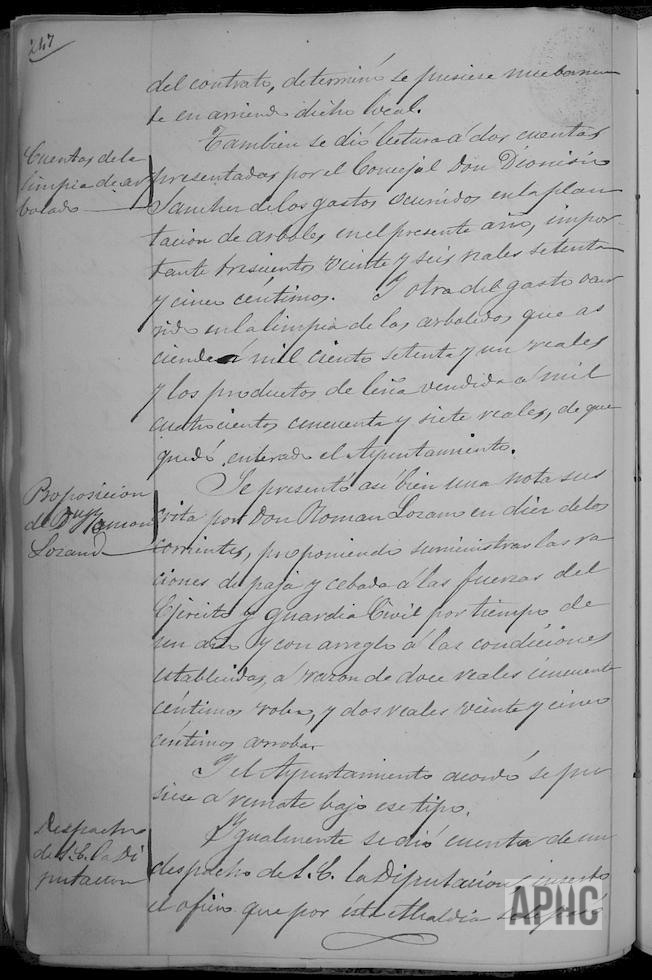 247
del contrato, determinó se pusiese nuebamen
te en arriendo dicho local.
Cuentas de la
limpia de ar
bolado
Tambien se dió lectura á dos cuentas
presentadas por el Concejal Don Dionisio
Sanchez de los gastos ocurridos en la plan
tacion de arboles en el presente año, impor-
tante trescientos veinte y seis reales setenta
y cinco céntimos. Y otra del gasto ocur
rido en la limpia de los arbolados que as
ciende á mil ciento setenta y un reales
y los productos de leña vendida á mil
cuatrocientos cincuenta y siete reales, de que
quedó enterado el Ayuntamiento.
Proposicion
de Dn Roman
Lozano
Se presentó asi bien una nota sus
crita por Don Roman Lozano en diez de los
corrientes, proponiendo suministrar las ra
ciones de paja y cebada á las fuerzas del
Ejército y guardia Civil por tiempo de
un año y con arreglo á las condiciones
establecidas, á razon de doce reales cincuenta
céntimos robo, y dos reales veinte y cinco
céntimos arroba.
Y el Ayuntamiento acordó se pu
siese á remate bajo ese tipo.
Despacho
de S.E. la Di
putacion
Ygualmente se dió cuenta de un
despacho de S.E. la Diputacion, inserto
el oficio que por ésta Alcaldia se le
APHC